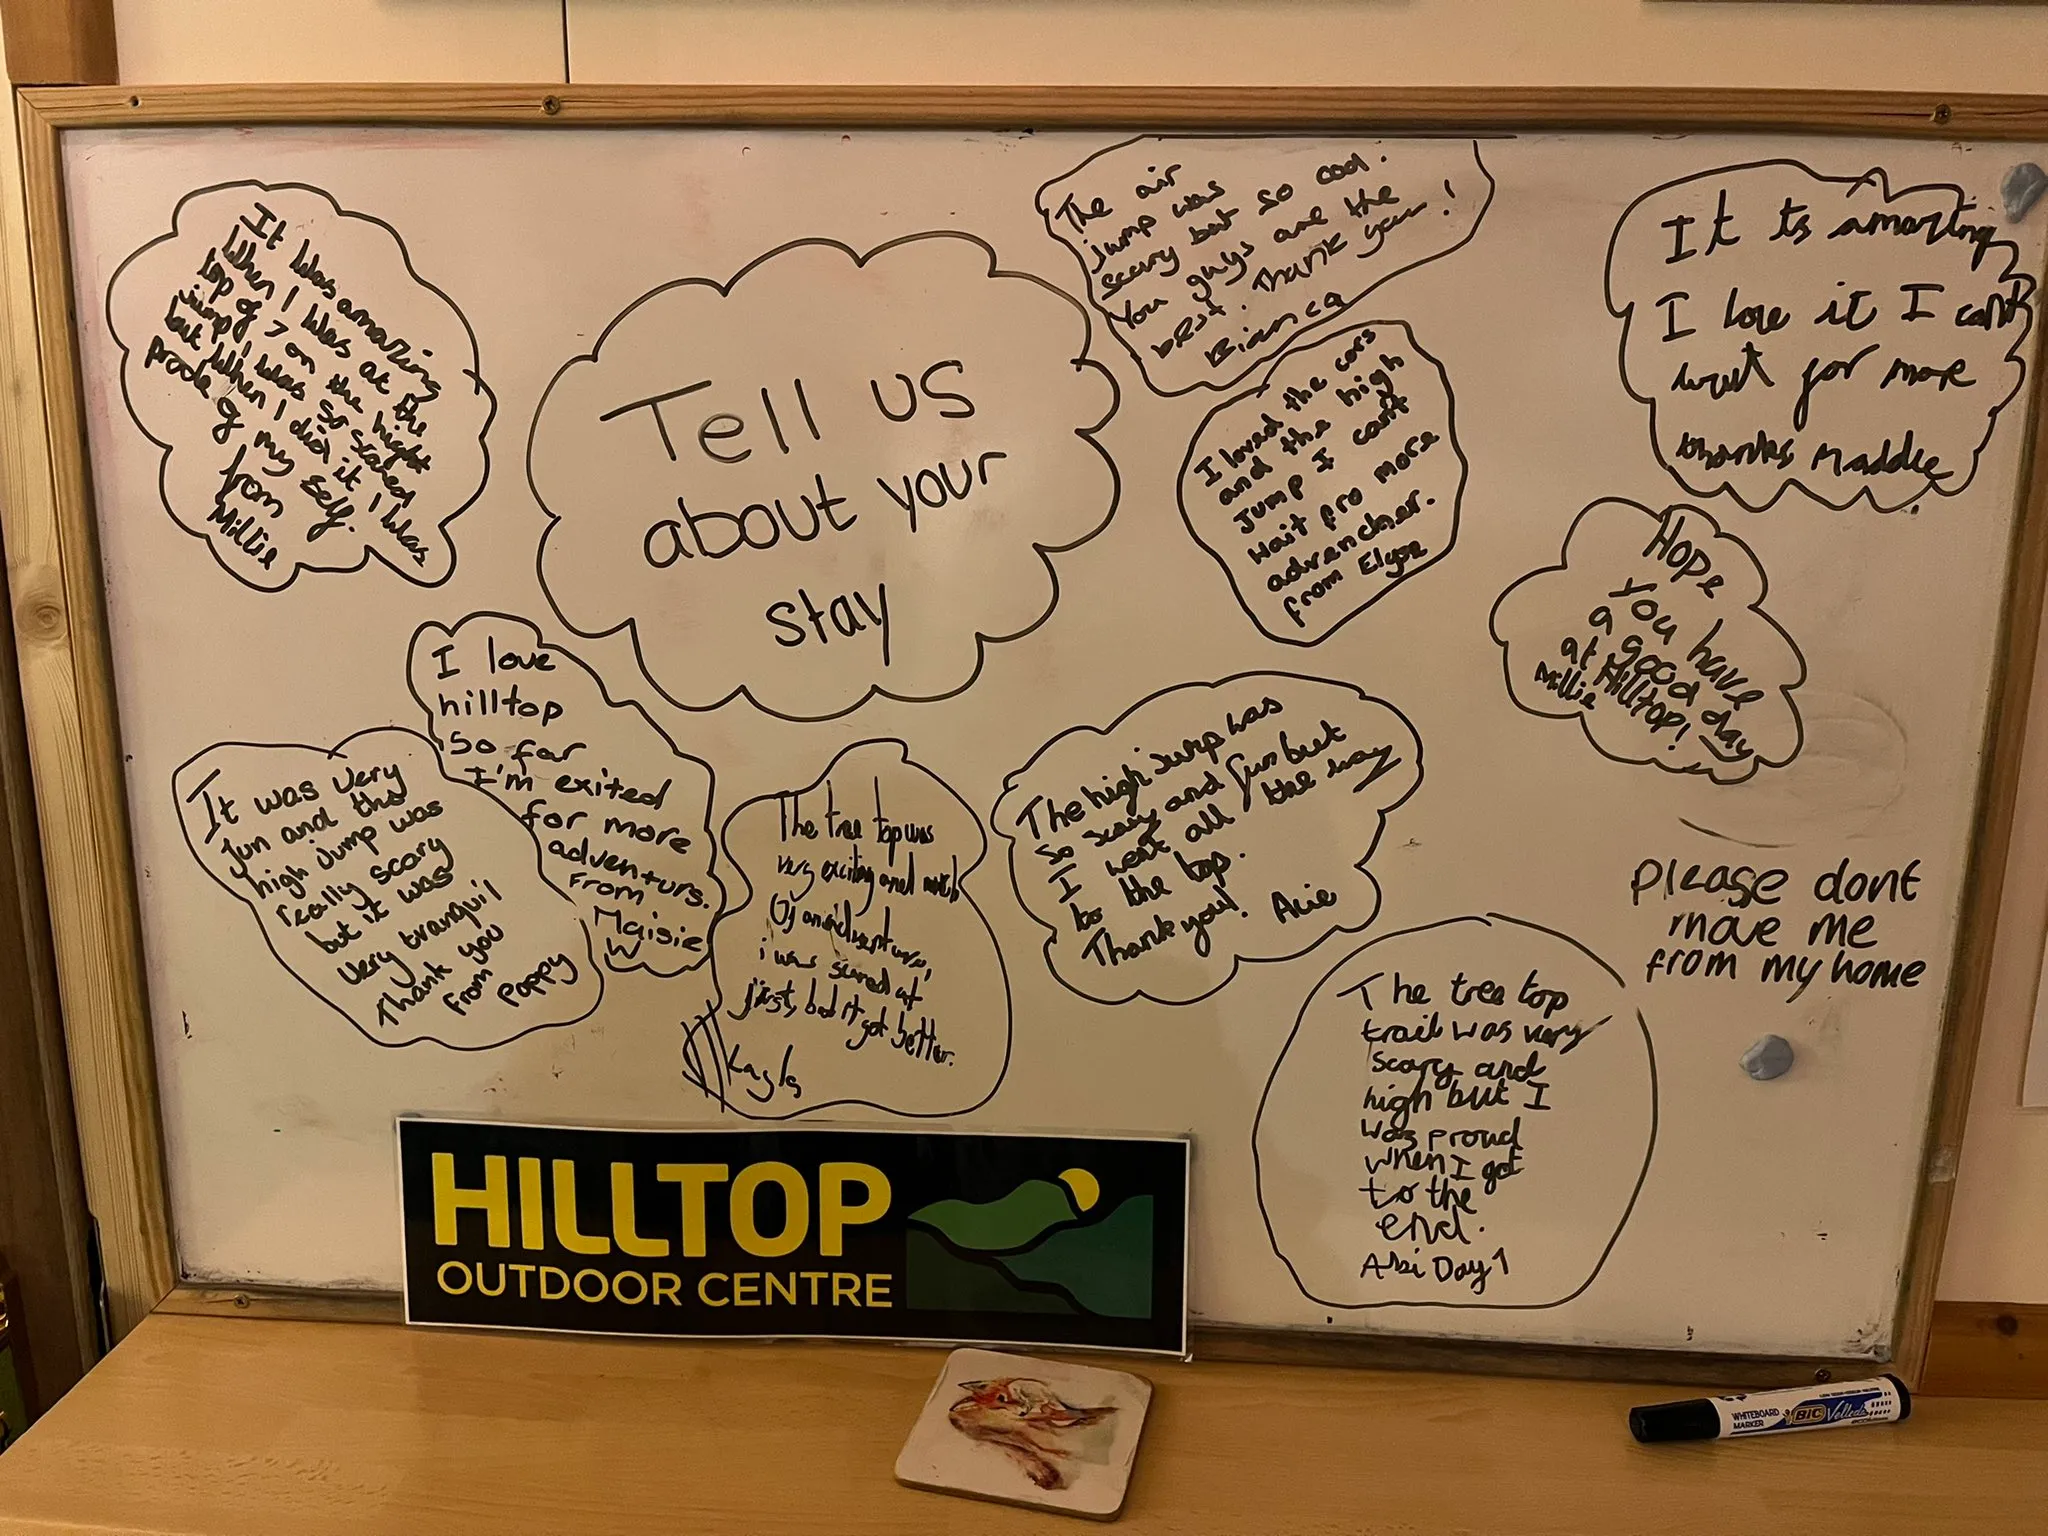 It was amazing
When I was at the
top of 7 on the hight
jump, I was so scared
but when I did it I was
prode of my self.
from
Millie
Tell us
about your
stay
The air
jump was
scary but so cool.
You guys are the
best. Thank you!
Bianca
I loved the cars
and the high
Jump I cant
wait fro more
adrencher.
from Elyse
It ts amazing
I love it I cant
wait for more
thanks Maddie
Hope
you have
a good day
at Hilltop!
Millie
I love
hilltop
So far
I'm exited
for more
adventurs.
From
Maisie
W
It was very
fun and the
high Jump was
really scary
but it was
very tranquil
Thank you
from
Poppy
The tree top was
very exciting and
Of an adventure,
i was scared at
first, but it got better.
Kayla
The high Jump was
so scary and fun but
I went all the way
to the top.
Thank you!
please dont
move me
from my home
The tree top
trail was very
scary and
high but I
was proud
when I got
to the
end.
Abi Day 1
HILLTOP
OUTDOOR CENTRE
WHITEBOARD
MARKER
BIC Velleda